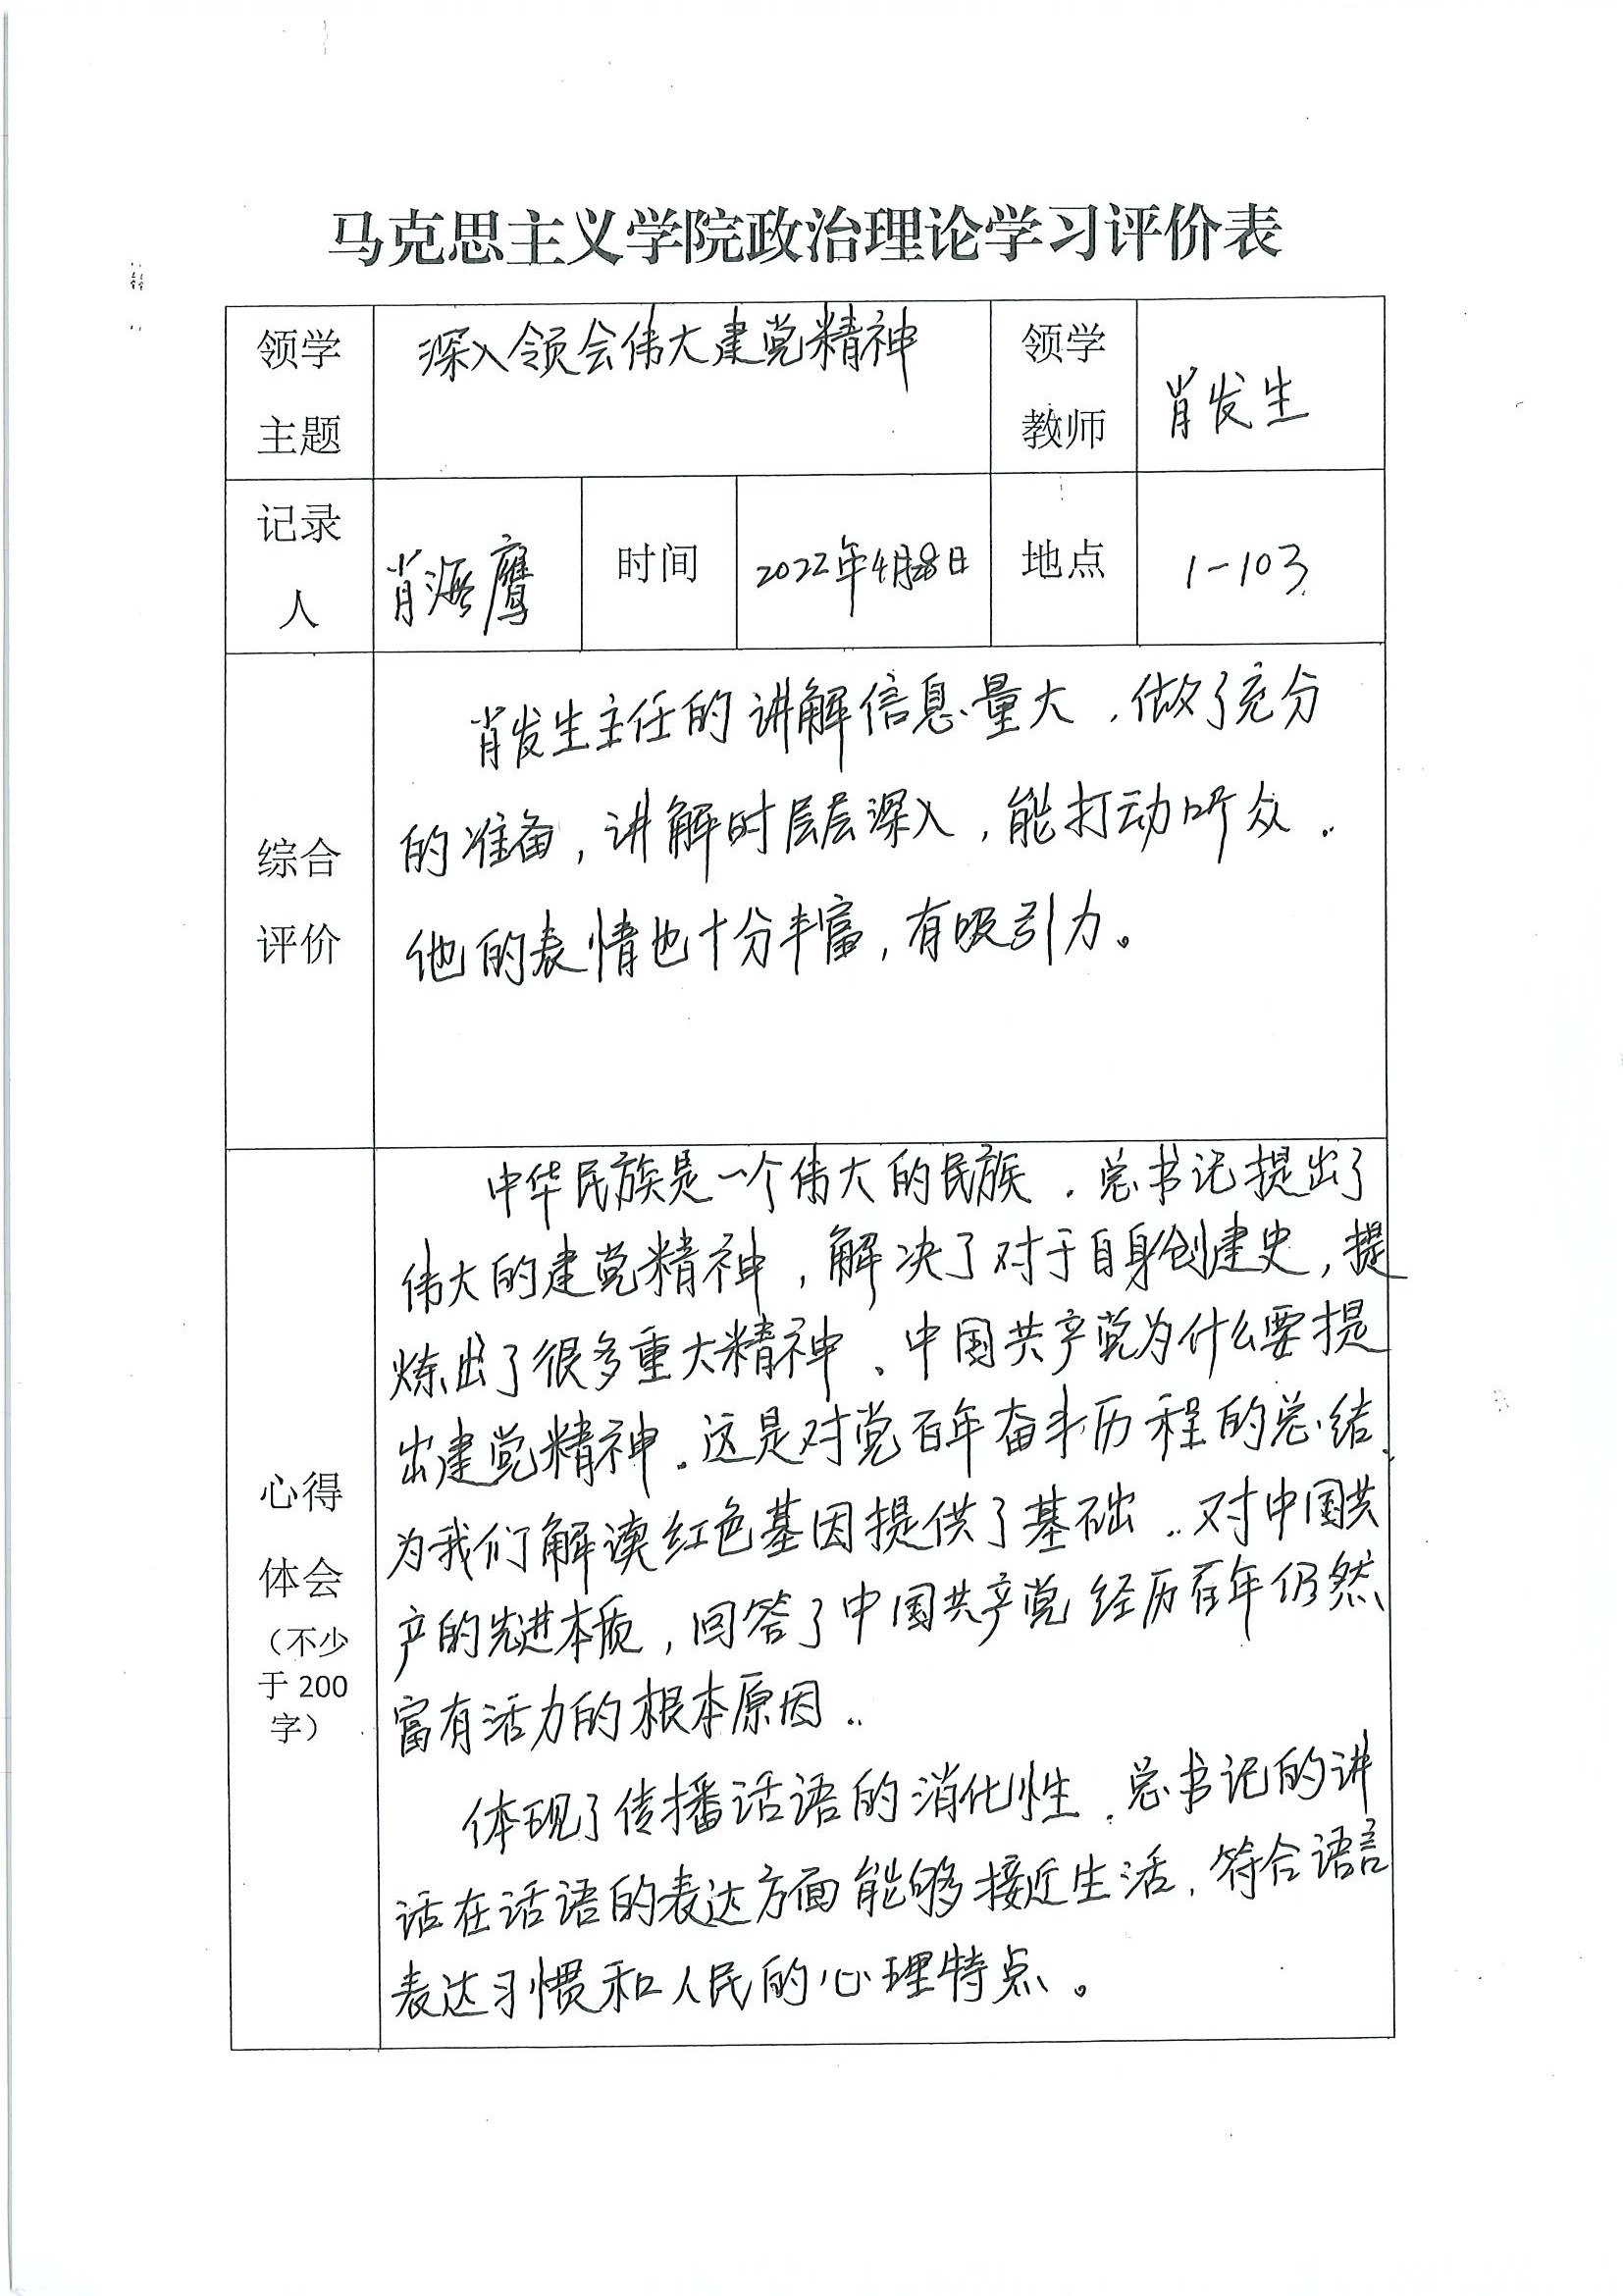 马克思主义学院政治理论学习评价表
领学主题
深入领会伟大建党精神
领学教师
肖发生
记录人
肖海鹰
时间
2022年4月28日
地点
1-103
综合评价
肖发生主任的讲解信息量大,做了充分
的准备,讲解时层层深入,能打动听众.
他的表情也十分丰富,有吸引力。
心得体会
(不少于200字)
中华民族是一个伟大的民族.总书记提出了
伟大的建党精神,解决了对于自身创建史,提
炼出了很多重大精神、中国共产党为什么要提
出建党精神.这是对党百年奋斗历程的总结、
为我们解读红色基因提供了基础..对中国共
产的先进本质,回答了中国共产党经历百年仍然
富有活力的根本原因..
体现了传播话语的消化性.总书记的讲
话在话语的表达方面能够接近生活,符合语言
表达习惯和人民的心理特点。